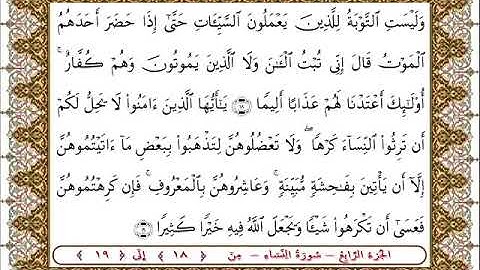 وَلَيْسَتِ ٱلتَّوْبَةُ لِلَّذِينَ يَعْمَلُونَ ٱلسَّيِّـَٔاتِ حَتَّىٰٓ إِذَا حَضَرَ أَحَدَهُمُ
ٱلْمَوْتُ قَالَ إِنِّى تُبْتُ ٱلْـَٰٔنَ وَلَا ٱلَّذِينَ يَمُوتُونَ وَهُمْ كُفَّارٌ ۚ
أُو۟لَـٰٓئِكَ أَعْتَدْنَا لَهُمْ عَذَابًا أَلِيمًا ١٨ يَـٰٓأَيُّهَا ٱلَّذِينَ ءَامَنُوا۟ لَا يَحِلُّ لَكُمْ
أَن تَرِثُوا۟ ٱلنِّسَآءَ كَرْهًا ۖ وَلَا تَعْضُلُوهُنَّ لِتَذْهَبُوا۟ بِبَعْضِ مَآ ءَاتَيْتُمُوهُنَّ
إِلَّآ أَن يَأْتِينَ بِفَـٰحِشَةٍ مُّبَيِّنَةٍ ۚ وَعَاشِرُوهُنَّ بِٱلْمَعْرُوفِ ۚ فَإِن كَرِهْتُمُوهُنَّ
فَعَسَىٰٓ أَن تَكْرَهُوا۟ شَيْـًٔا وَيَجْعَلَ ٱللَّهُ فِيهِ خَيْرًا كَثِيرًا ١٩
الجزء الرَّابِع - سُورَةُ النِّسَاء - مِنْ ﴿ ١٨ ﴾ إِلَى ﴿ ١٩ ﴾